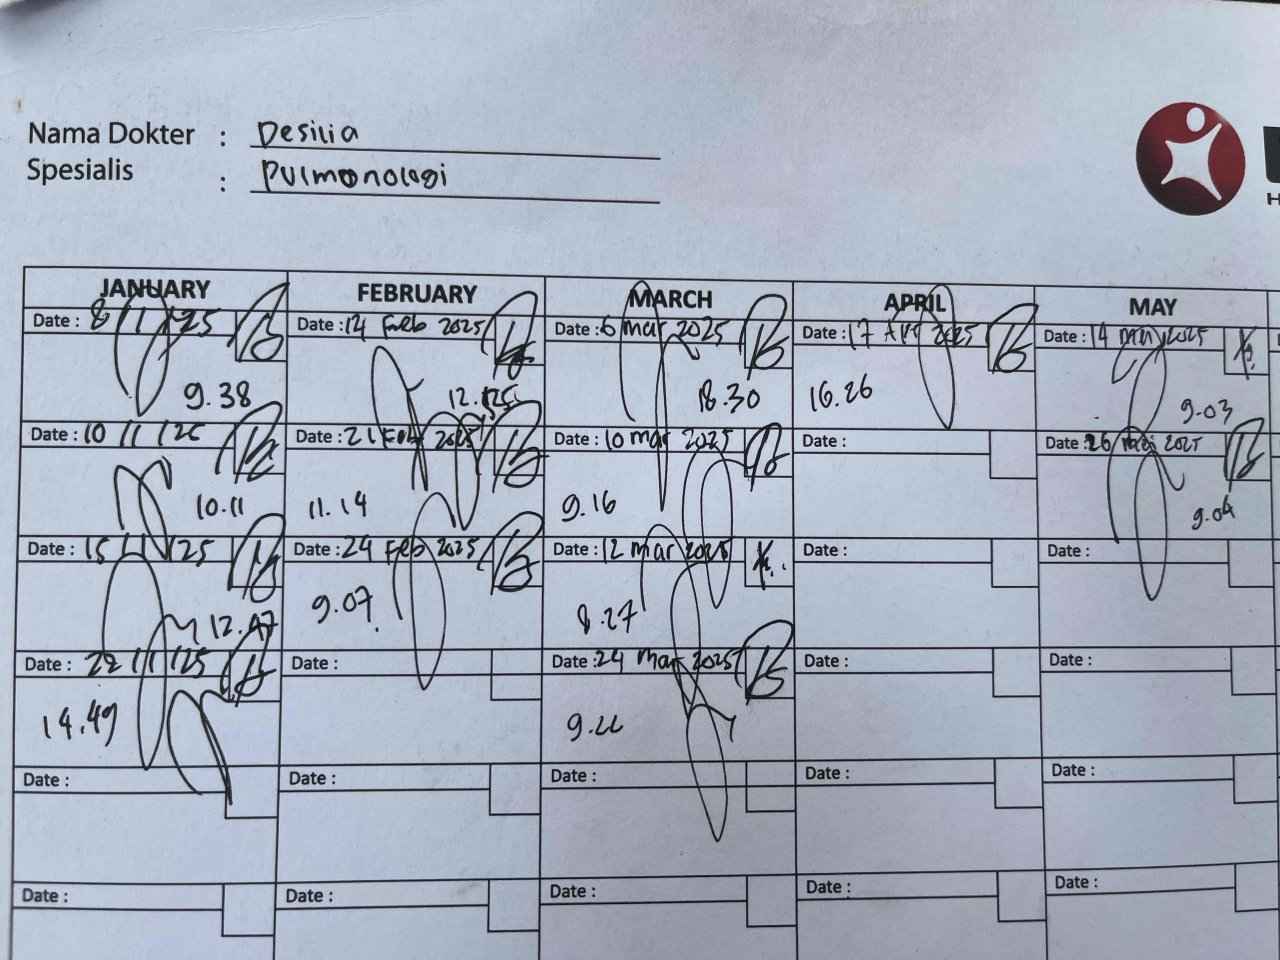 Nama Dokter : Desilia
Spesialis : Pulmonologi
H
JANUARY FEBRUARY MARCH APRIL MAY
Date : 8/1/25 Date : 14 Feb 2025 Date : 6 mar 2025 Date : 17 Apr 2025 Date : 14 may 2025
9.38 12. 18.30 16.26 9.03
Date : 10/1/25 Date : 21 Feb 2025 Date : 10 mar 2025 Date : Date : 26 mei 2025
10.11 11.14 9.16 9.04
Date : 15/1/25 Date : 24 Feb 2025 Date : 12 mar 2025 Date : Date :
12.47 9.07 8.27
Date : 22/1/25 Date : Date : 24 mar 2025 Date : Date :
14.49 9.22
Date : Date : Date : Date : Date :
Date : Date : Date : Date : Date :